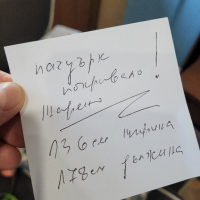 пачуърк !
покривало
шарено
136 см ширина
178 см дължина